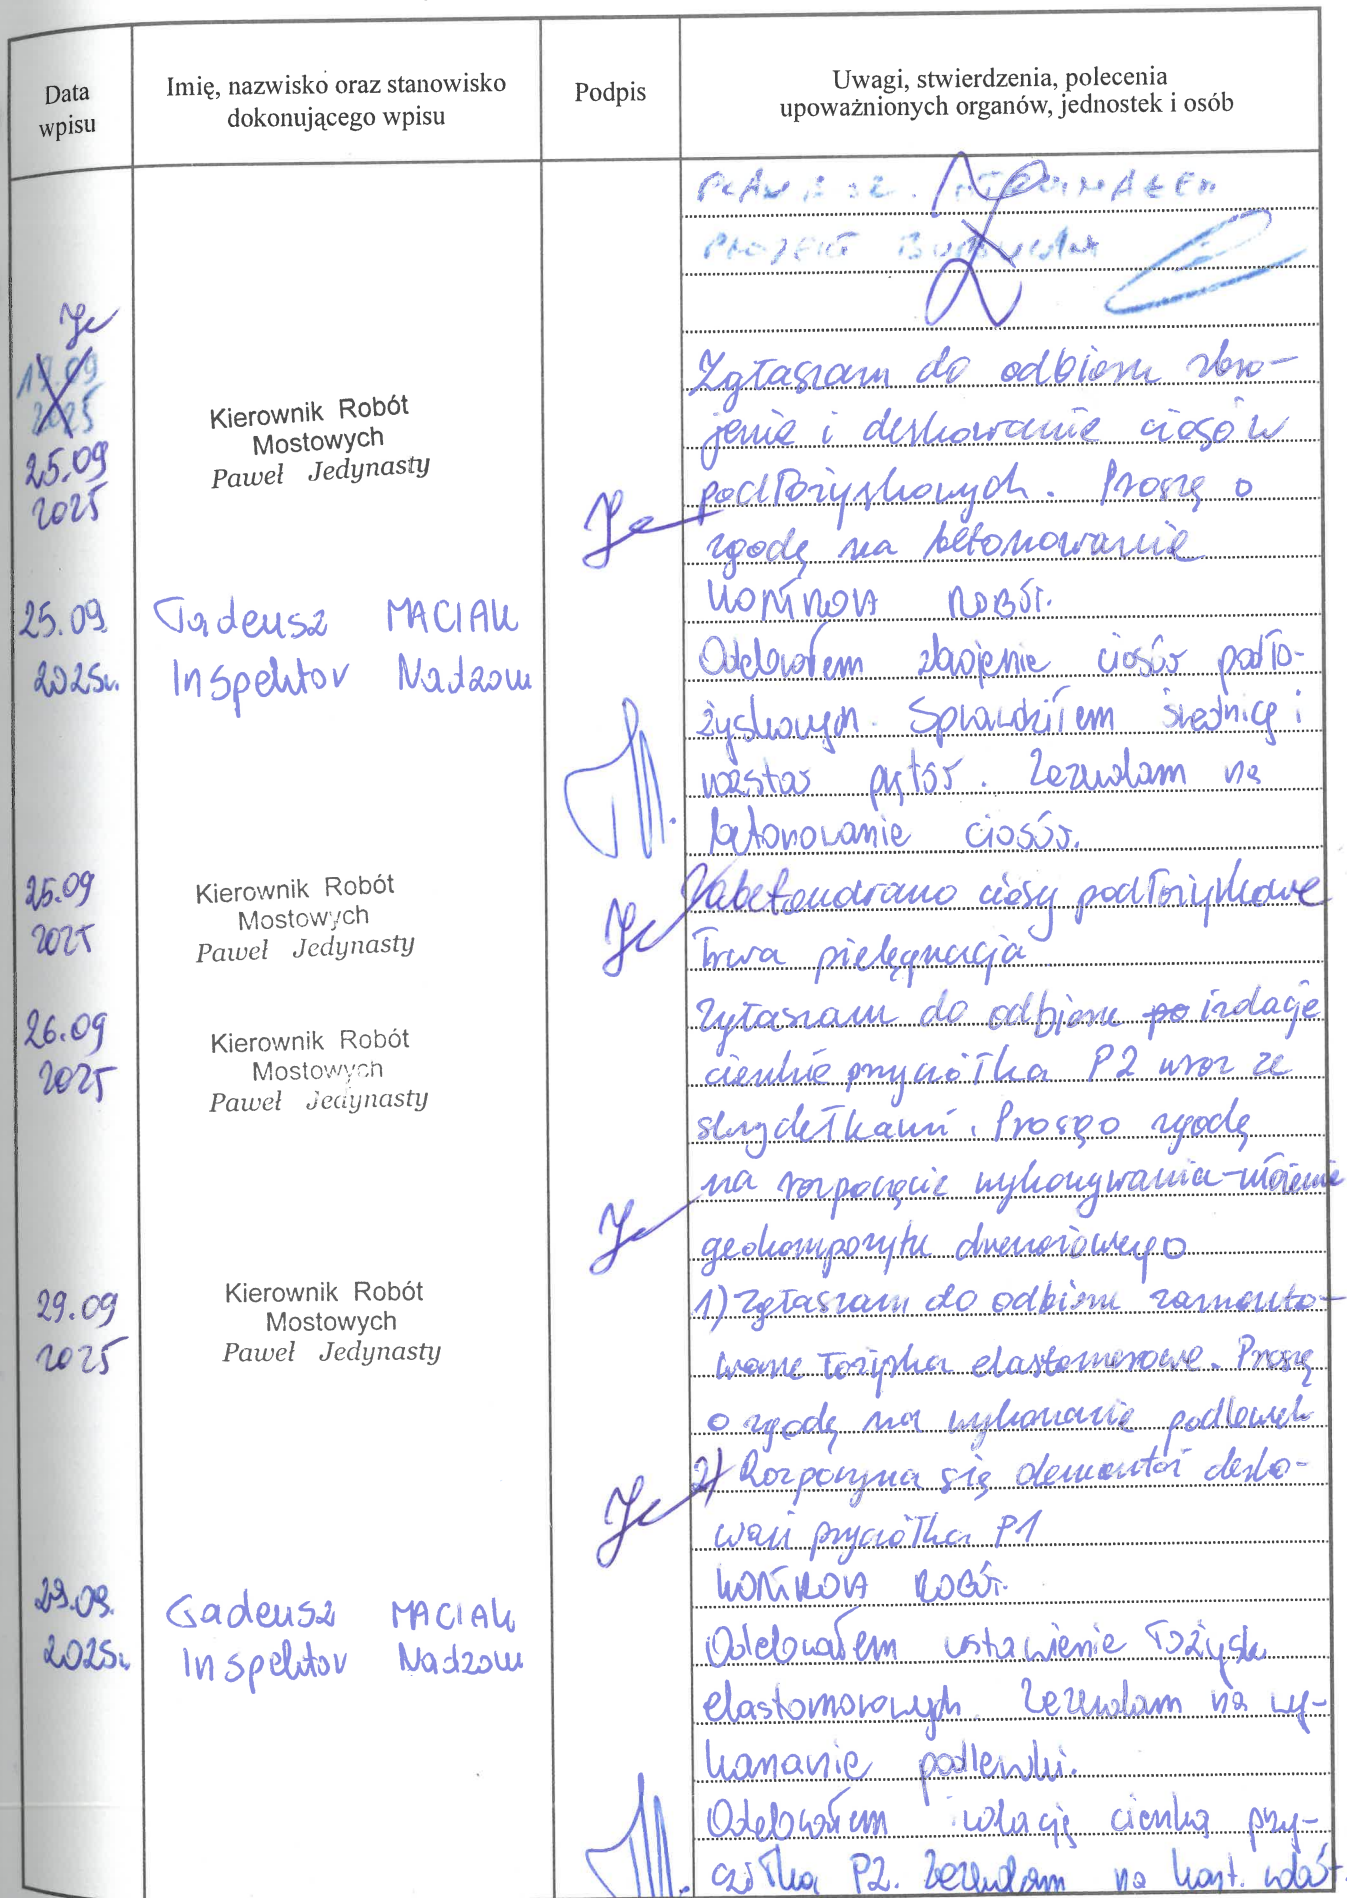 Data
wpisu
Imię, nazwisko oraz stanowisko
dokonującego wpisu
Podpis
Uwagi, stwierdzenia, polecenia
upoważnionych organów, jednostek i osób
PROJEKT
19.09
2025
25.09
2025
Kierownik Robót
Mostowych
Paweł Jedynasty
Zgłaszam do odbioru zbro-
jenie i deskowanie ciosów
podłożyskowych. Proszę o
zgodę na betonowanie
25.09
2025r.
Tadeusz MACIAK
Inspektor Nadzoru
KONTROLA ROBÓT.
Odebrałem zbrojenie ciosów podło-
żyskowych. Sprawdziłem średnicę i
rozstaw prętów. Zezwalam na
betonowanie ciosów.
25.09
2025
Kierownik Robót
Mostowych
Paweł Jedynasty
Zabetonowano ciosy podłożyskowe
Trwa pielęgnacja
26.09
2025
Kierownik Robót
Mostowych
Paweł Jedynasty
Zgłaszam do odbioru po izolacje
cienkie przyczółka P2 wraz ze
skrzydełkami. Proszę o zgodę
na rozpoczęcie wykonywania-ułożenie
geokompozytu drenażowego
29.09
2025
Kierownik Robót
Mostowych
Paweł Jedynasty
1) Zgłaszam do odbioru zamonto-
wane łożyska elastomerowe. Proszę
o zgodę na wykonanie podlewek
2) Rozpoczyna się demontaż desko-
wań przyczółka P1
29.09.
2025r.
Tadeusz MACIAK
Inspektor Nadzoru
KONTROLA ROBÓT.
Odebrałem ustawienie łożysk
elastomerowych. Zezwalam na wy-
konanie podlewki.
Odebrałem izolację cienką przy-
czółka P2. Zezwalam na kont. robót.